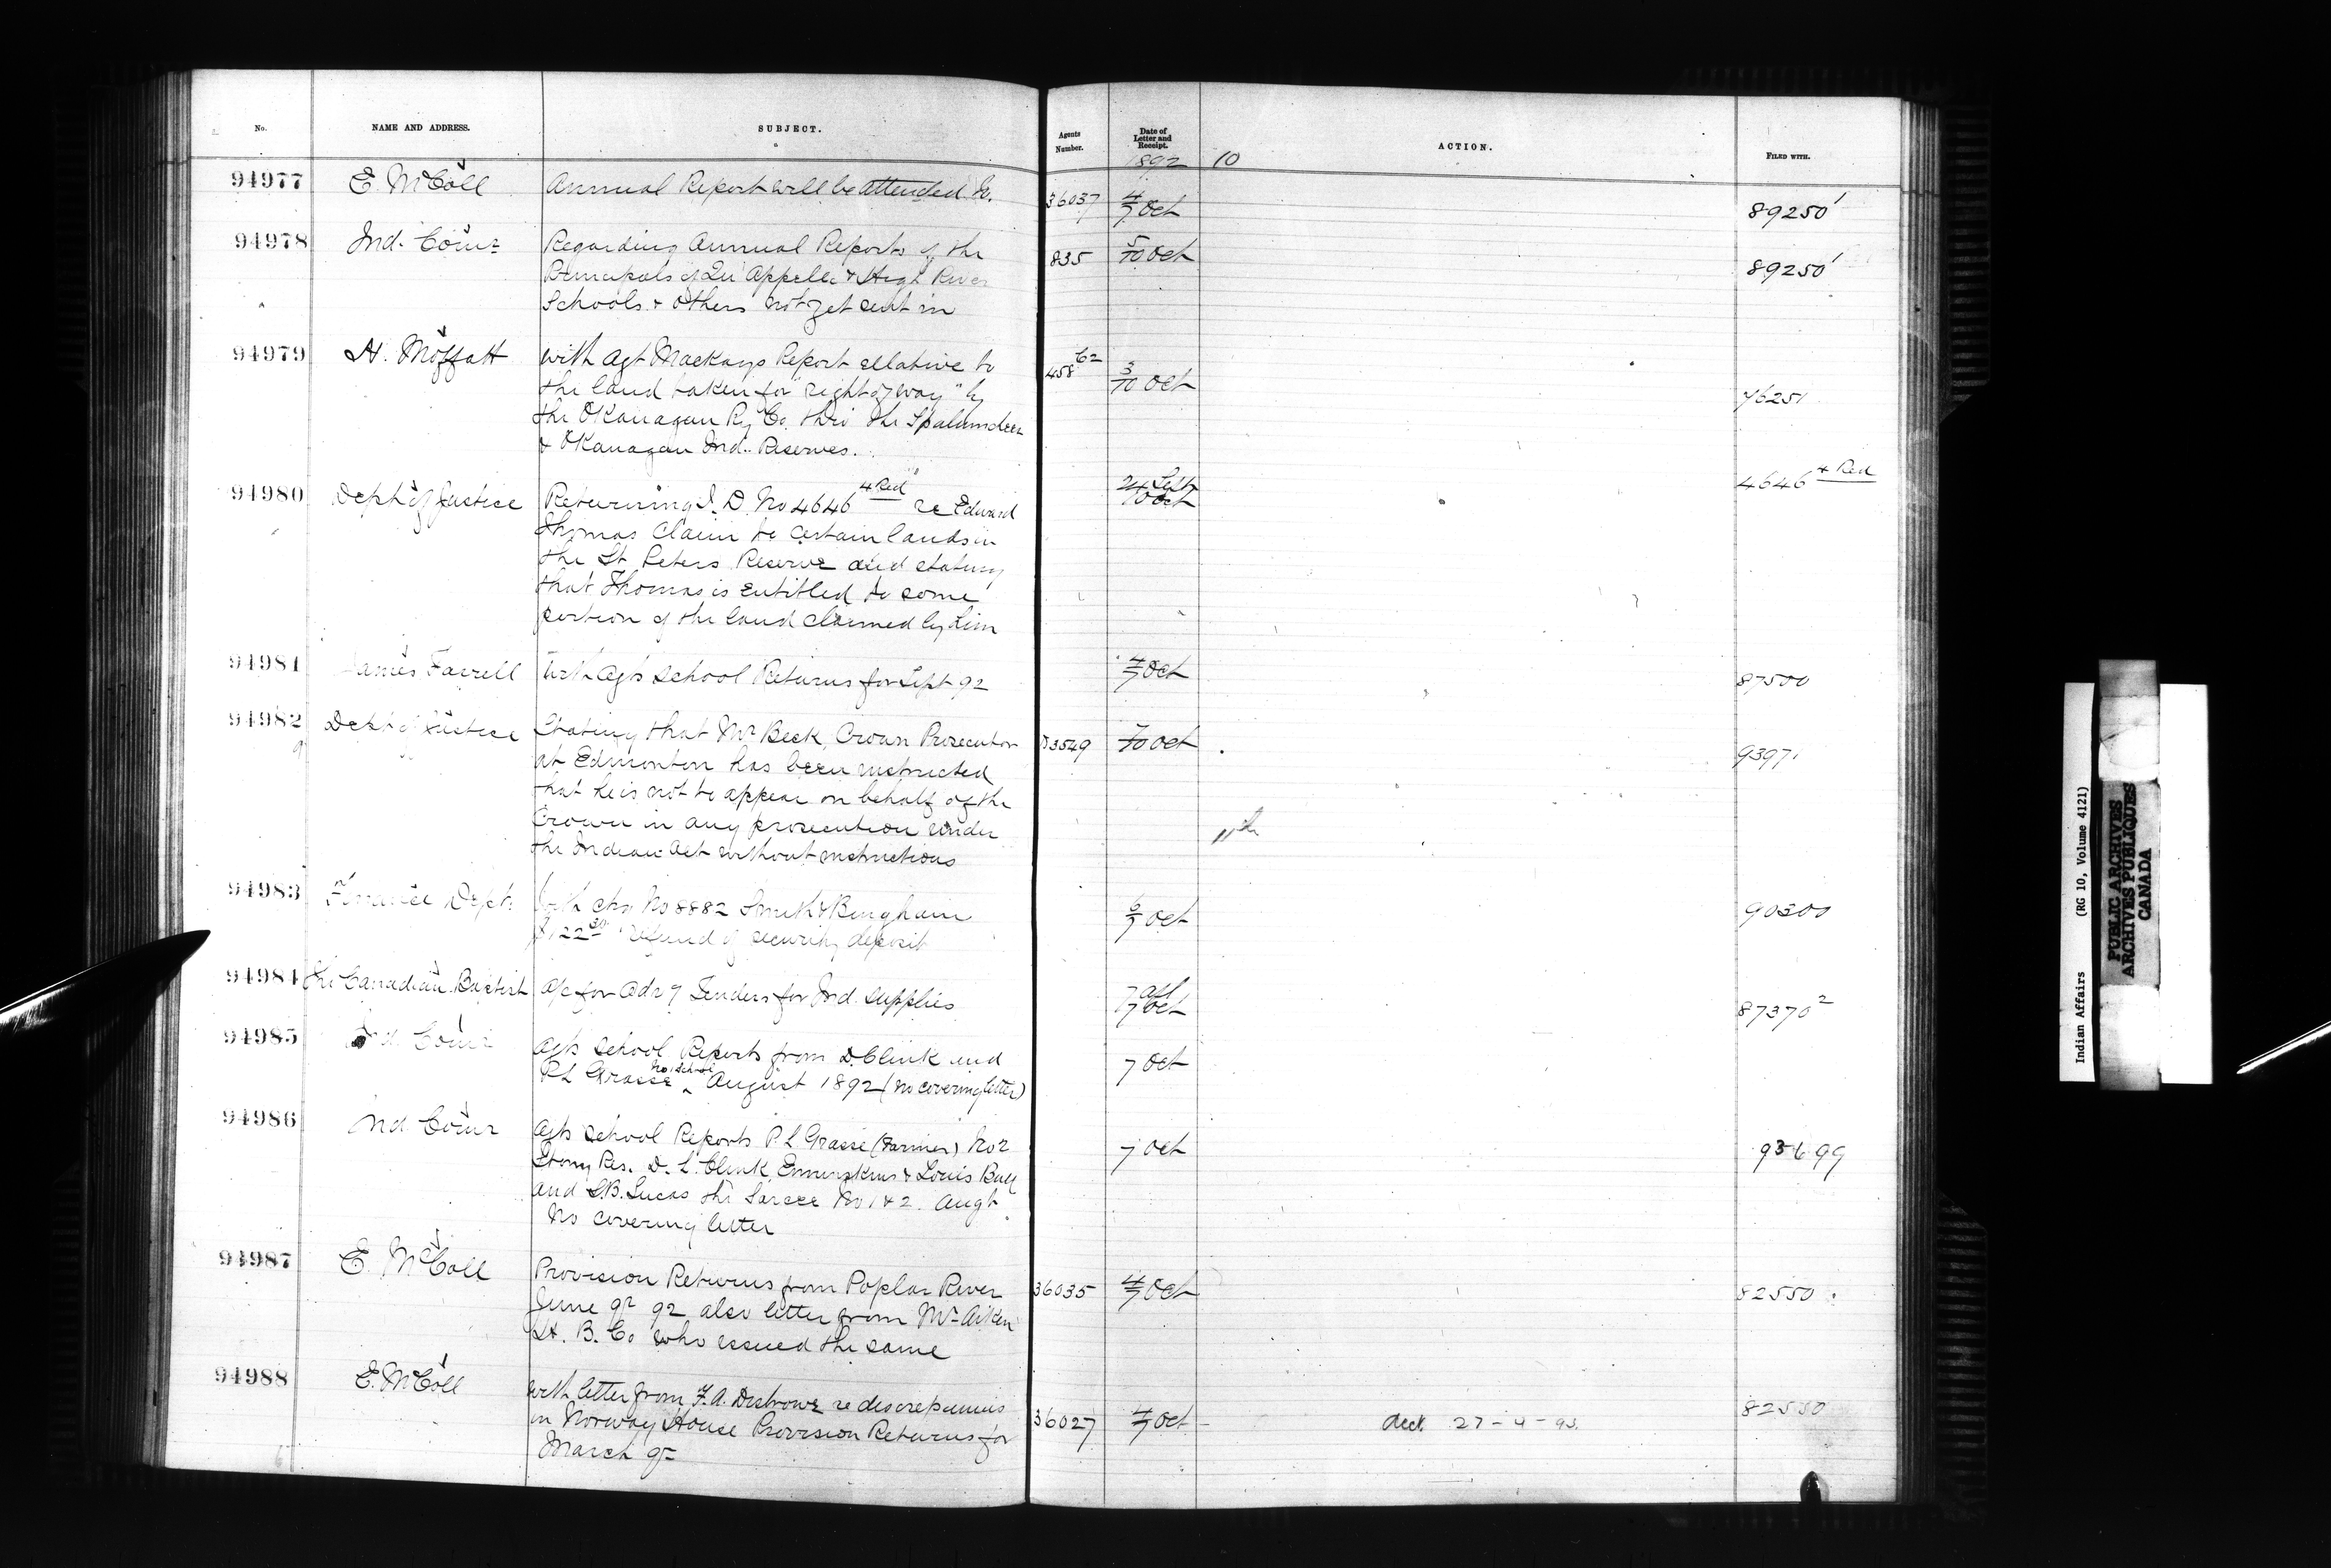 No. NAME AND ADDRESS. SUBJECT. Agents Number. Date of Letter and Receipt. ACTION. FILED WITH.
1892 10
94977 E. McColl Annual Report will be attended to. 36037 4/7 Oct 89250¹
94978 Ind. Comr Regarding Annual Reports of the 835 5/10 Oct 89250¹
Principals of Qu'Appelle & High River
Schools & others not yet sent in
94979 H. Moffatt With Agt Mackays Report relative to 458 62 3/10 Oct 76251
the land taken for "right of way" by
the Okanagan Ry Co. thro the Spalumcheen
& Okanagan Ind. Reserves.
94980 Dept of Justice Returning I. D. No 4646 4 Red re Edward 24 Sept 10 Oct 4646 4 Red
Thomas Claim to certain lands in
the St Peters Reserve and stating
that Thomas is entitled to some
portion of the land claimed by him
94981 James Farrell With Agts School Returns for Sept 92 4/7 Oct 87500
94982 Dept of Justice Stating that Mr Beck, Crown Prosecutor 3549 7/10 Oct 9397
at Edmonton has been instructed
that he is not to appear on behalf of the
Crown in any prosecution under
11th
the Indian Act without instructions
94983 Finance Dept. With chq No 8882 Smith & Bingham 6/7 Oct 90300
$122 30 refund of security deposit
94984 The Canadian Baptist a/c for Adv of Tenders for Ind. supplies 7 Oct 87370²
94985 Ind. Comr Agts School Reports from D. Clink and 7 Oct
P.L Grasse No 1 School August 1892 (no covering letter)
94986 Ind Comr Agts School Reports P. L Grasse (Farmer) No 2 7 Oct 93699
Stony Res. D. L. Clink, Ermineskins & Louis Bull
and S.B. Lucas the Sarcee No 1 & 2. Augt.
No covering letter
94987 E. McColl Provision Returns from Poplar River 36035 4/7 Oct 82550
June qr 92 also letter from Mr Aiken
H. B. Co who issued the same
94988 E. McColl With letter from F. A. Disbrowe re discrepancies 36027 4/7 Oct 82550
in Norway House Provision Returns for
March qr
27-4-93.
Indian Affairs (RG 10, Volume 4121)
PUBLIC ARCHIVES
ARCHIVES PUBLIQUES
CANADA